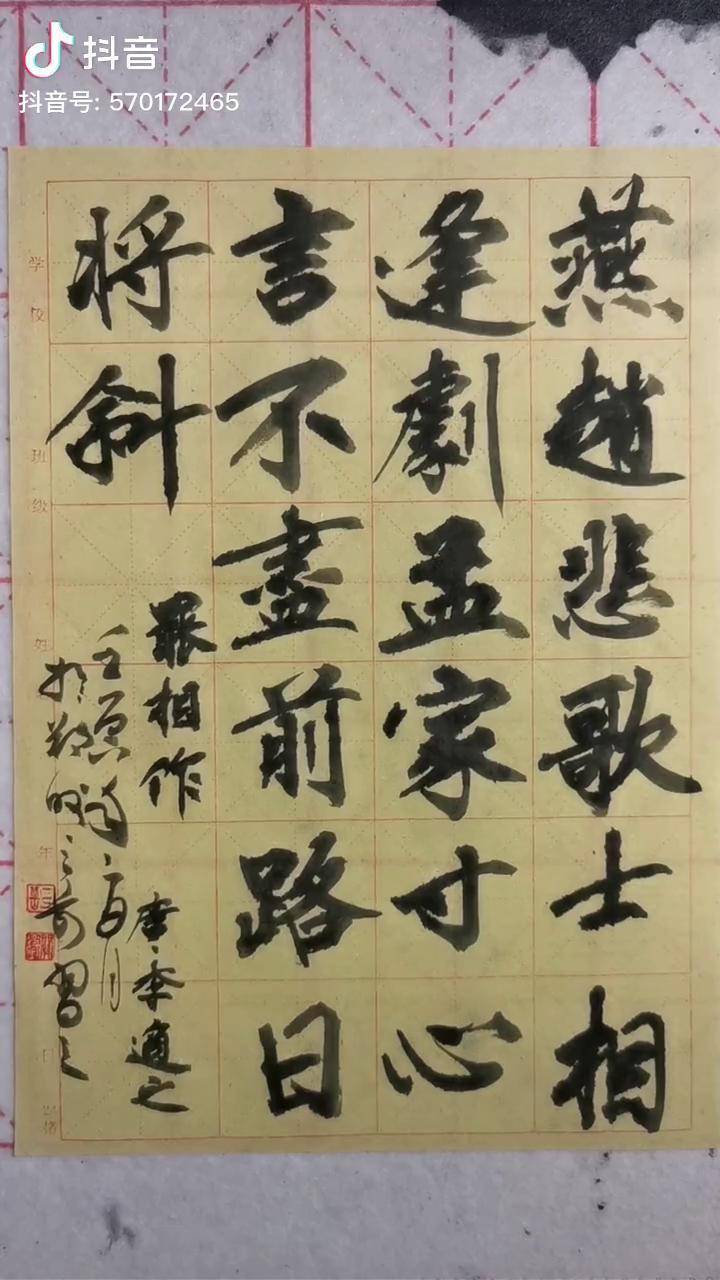 抖音
抖音号: 570172465
燕趙悲歌士相
逢劇孟家寸心
言不盡前路日
将斜
罷相作
唐、李適之
二月
習之
学校
班级
姓
年
日